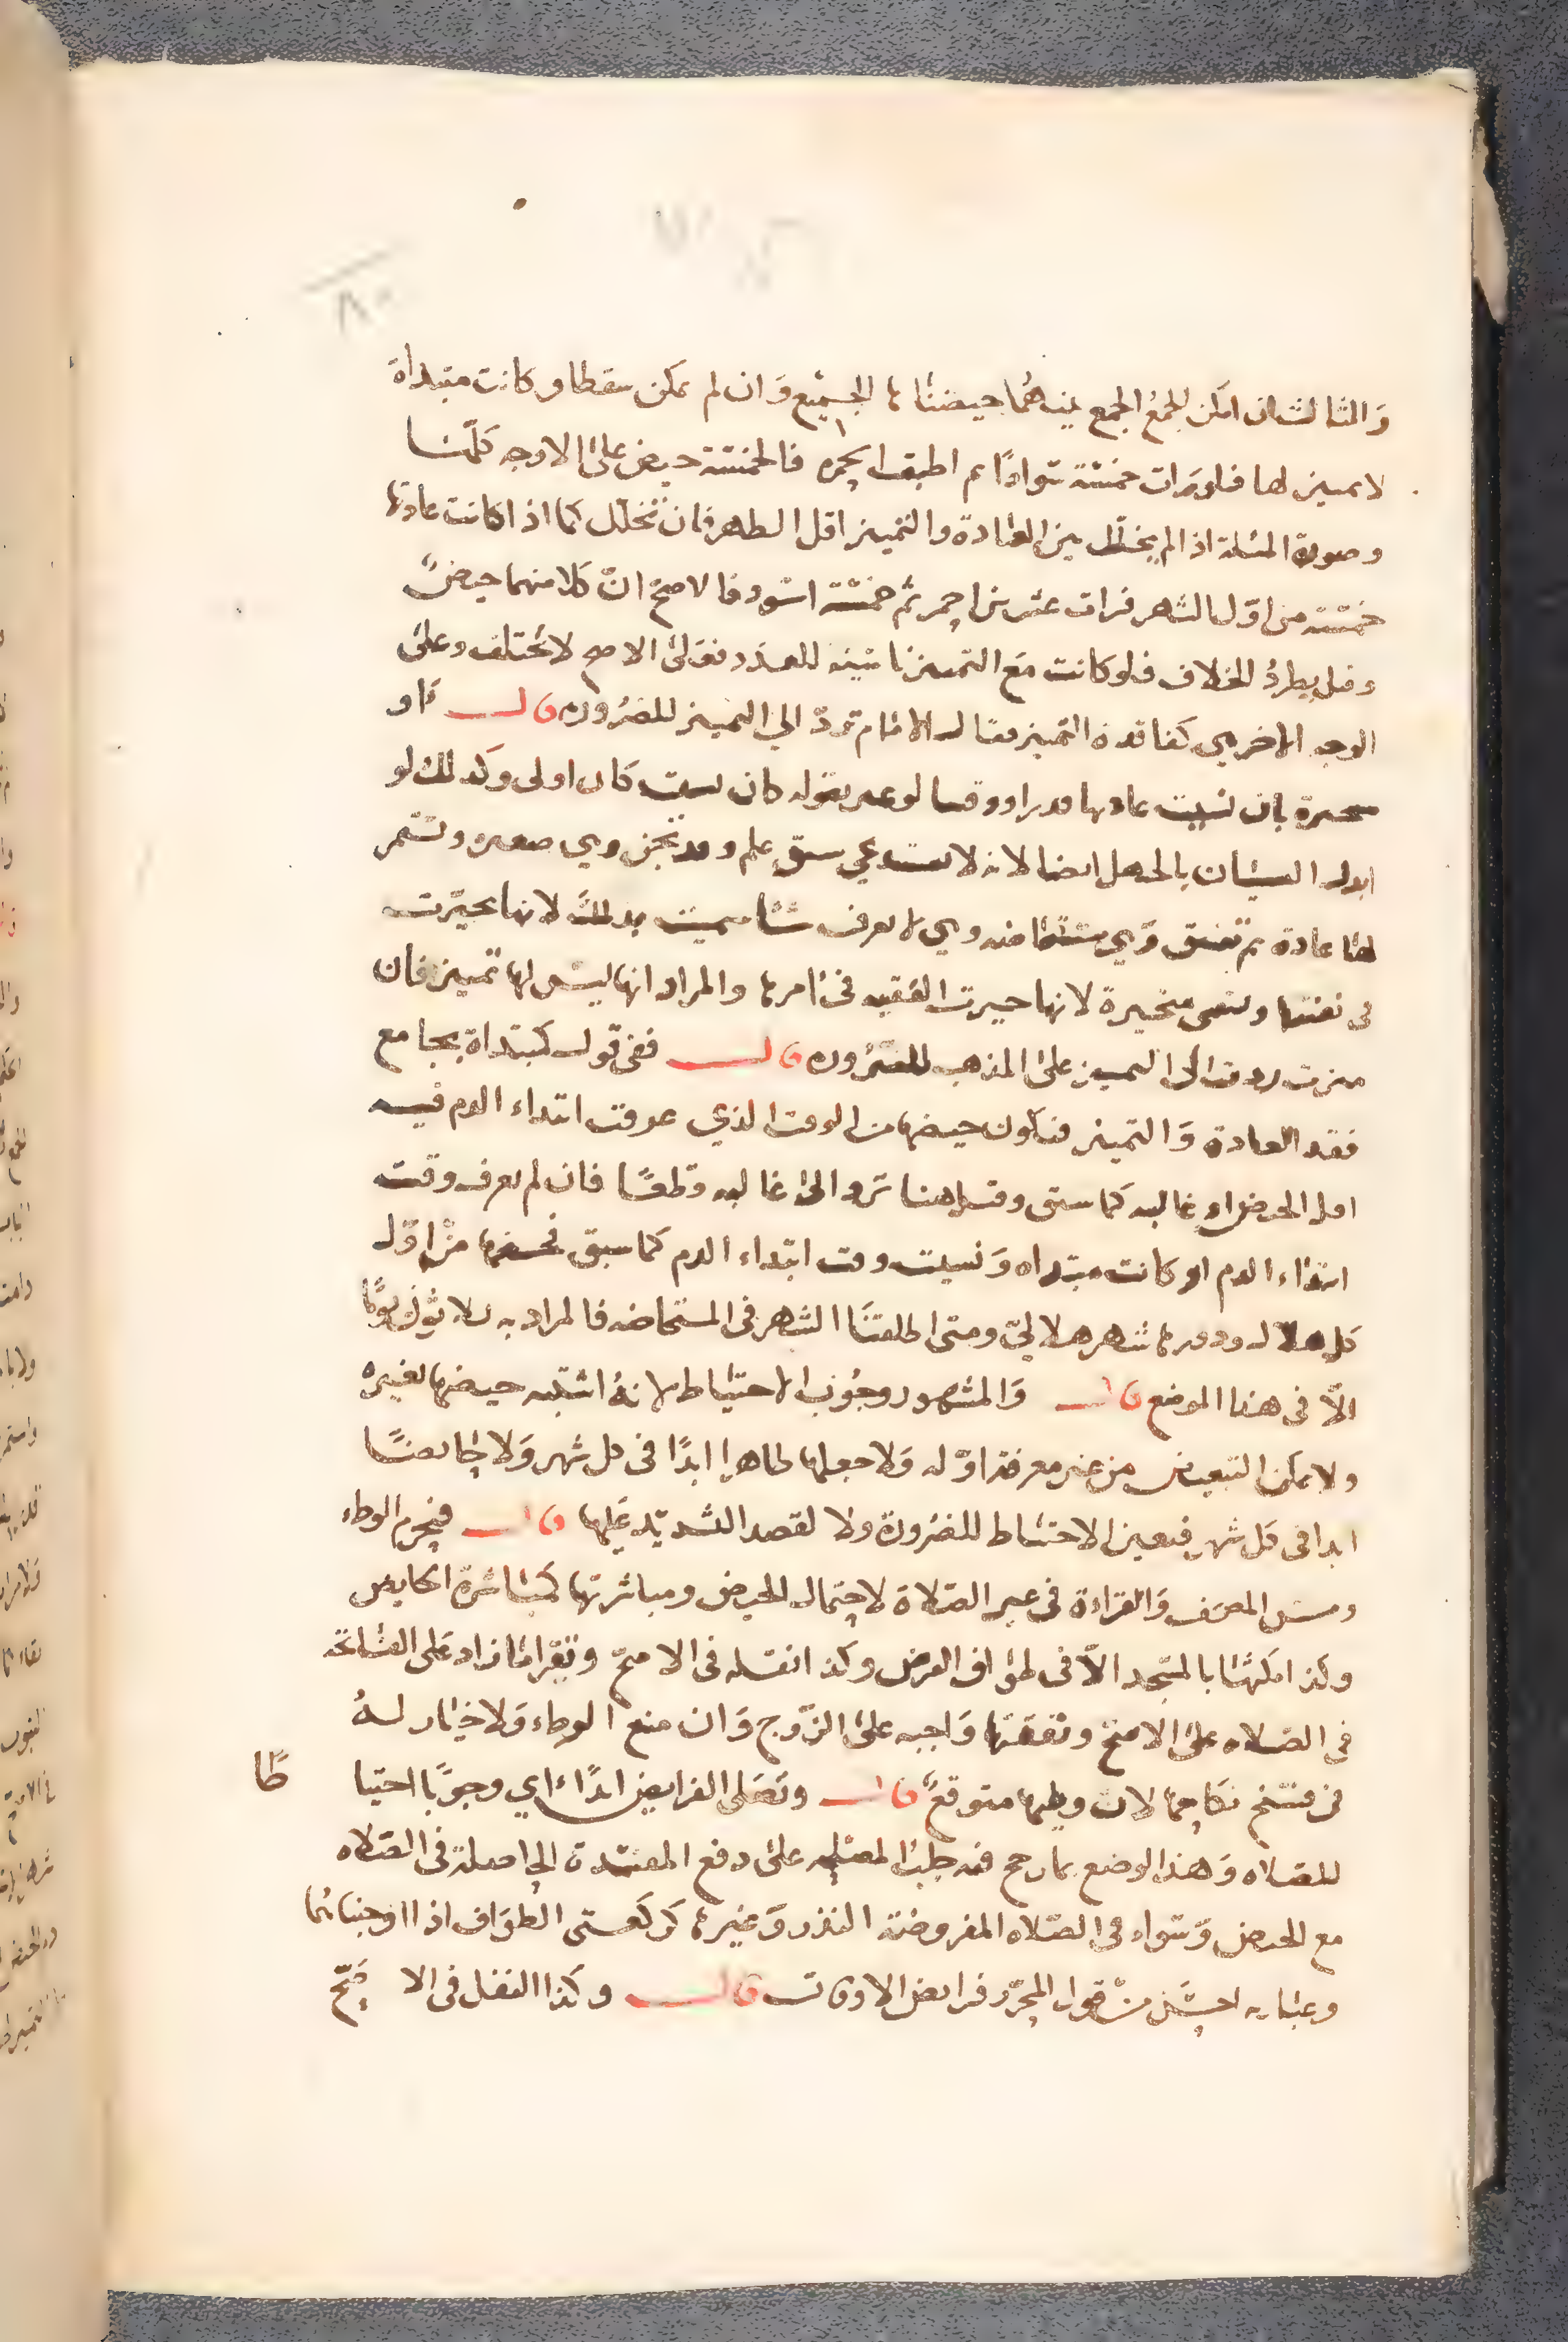 والثالث ان امكن الجمع الجمع بينهما حيضناها الجميع وان لم يمكن سقطا وكانت مبتدأة
لا تمييز لها فلو رات خمسة سوادا ثم اطبق الحمرة فالخمسة حيض على الاوجه كلها
وصورة المسئلة اذا لم يتخلل بين العادة والتمييز اقل الطهر فان تخلل كما اذا كانت عادتها
خمسة من اول الشهر فرات عشرين احمر ثم خمسة اسود فالاصح ان كلا منهما حيض
وقيل يطرد الخلاف فلو كانت مع التمييز ناسية للعدد فعلى الاصح لا يختلف وعلى
الوجه الاخر هي كفاقدة التمييز وقال الامام ترد الي التمييز للضرورة قال او
متحيرة بان نسيت عادتها قدرا ووقتا لو عبر بقوله كان نسيت كان اولى وكذلك لو
ابدل النسيان بالجهل ايضا لانه لا يستدعي سبق علم وقد تجن وهي صغيرة وتستمر
لها عادة ثم تفيق وهي مستحاضه وهي لا تعرف شيا سميت بذلك لانها تحيرت
في نفسها وتسمى محيرة لانها حيرت الفقيه في امرها والمراد انها ليس لها تمييز فان
ميزت ردت الى التمييز على المذهب للضرورة قال ففي قول كمبتداة بجامع
فقد العادة والتمييز فيكون حيضها من الوقت الذي عرفت ابتداء الدم فيه
اقل الحيض او غالبه كما سبق وقيل هنا ترد الى غالبه قطعا فان لم تعرف وقت
ابتداء الدم او كانت مبتداه ونسيت وقت ابتداء الدم كما سبق فحيضها من اول
كل هلال ودورها شهر هلالي ومتى اطلقنا الشهر في المستحاضه فالمراد به ثلاثون يوما
الا في هذا الموضع قال والمشهور وجوب الاحتياط لانه اشتبه حيضها بغيره
ولا يمكن التبعيض من غير معرفة اوله ولا جعلها طاهرا ابدا في كل شهر ولا حايضا
ابدا في كل شهر فتعين الاحتياط للضرورة ولا لقصد التشديد عليها قال فيحرم الوطء
ومس المصحف والقراءة في غير الصلاة لاحتمال الحيض ومباشرتها كمباشرة الحايض
وكذا مكثها بالمسجد الا في طواف الفرض وكذا نفله في الاصح وتقرا ما زاد على الفاتحة
في الصلاه على الاصح ونفقتها واجبه على الزوج وان منع الوطء ولا خيار له
في فسخ نكاحها لان وطيها متوقع قال وتصلى الفرايض ابدا اي وجوبا احتيا طا
للصلاه وهذا الوضع بما رجح فيه جلب المصلحه على دفع المفسدة الحاصلة في الصلاه
مع الحيض وسواء في الصلاه المفروضة النذر وغيرها كركعتي الطواف اذا اوجبناهما
وعبارته احسن من قول المحرر فرايض الاوقات قال وكذا النفل في الا صح